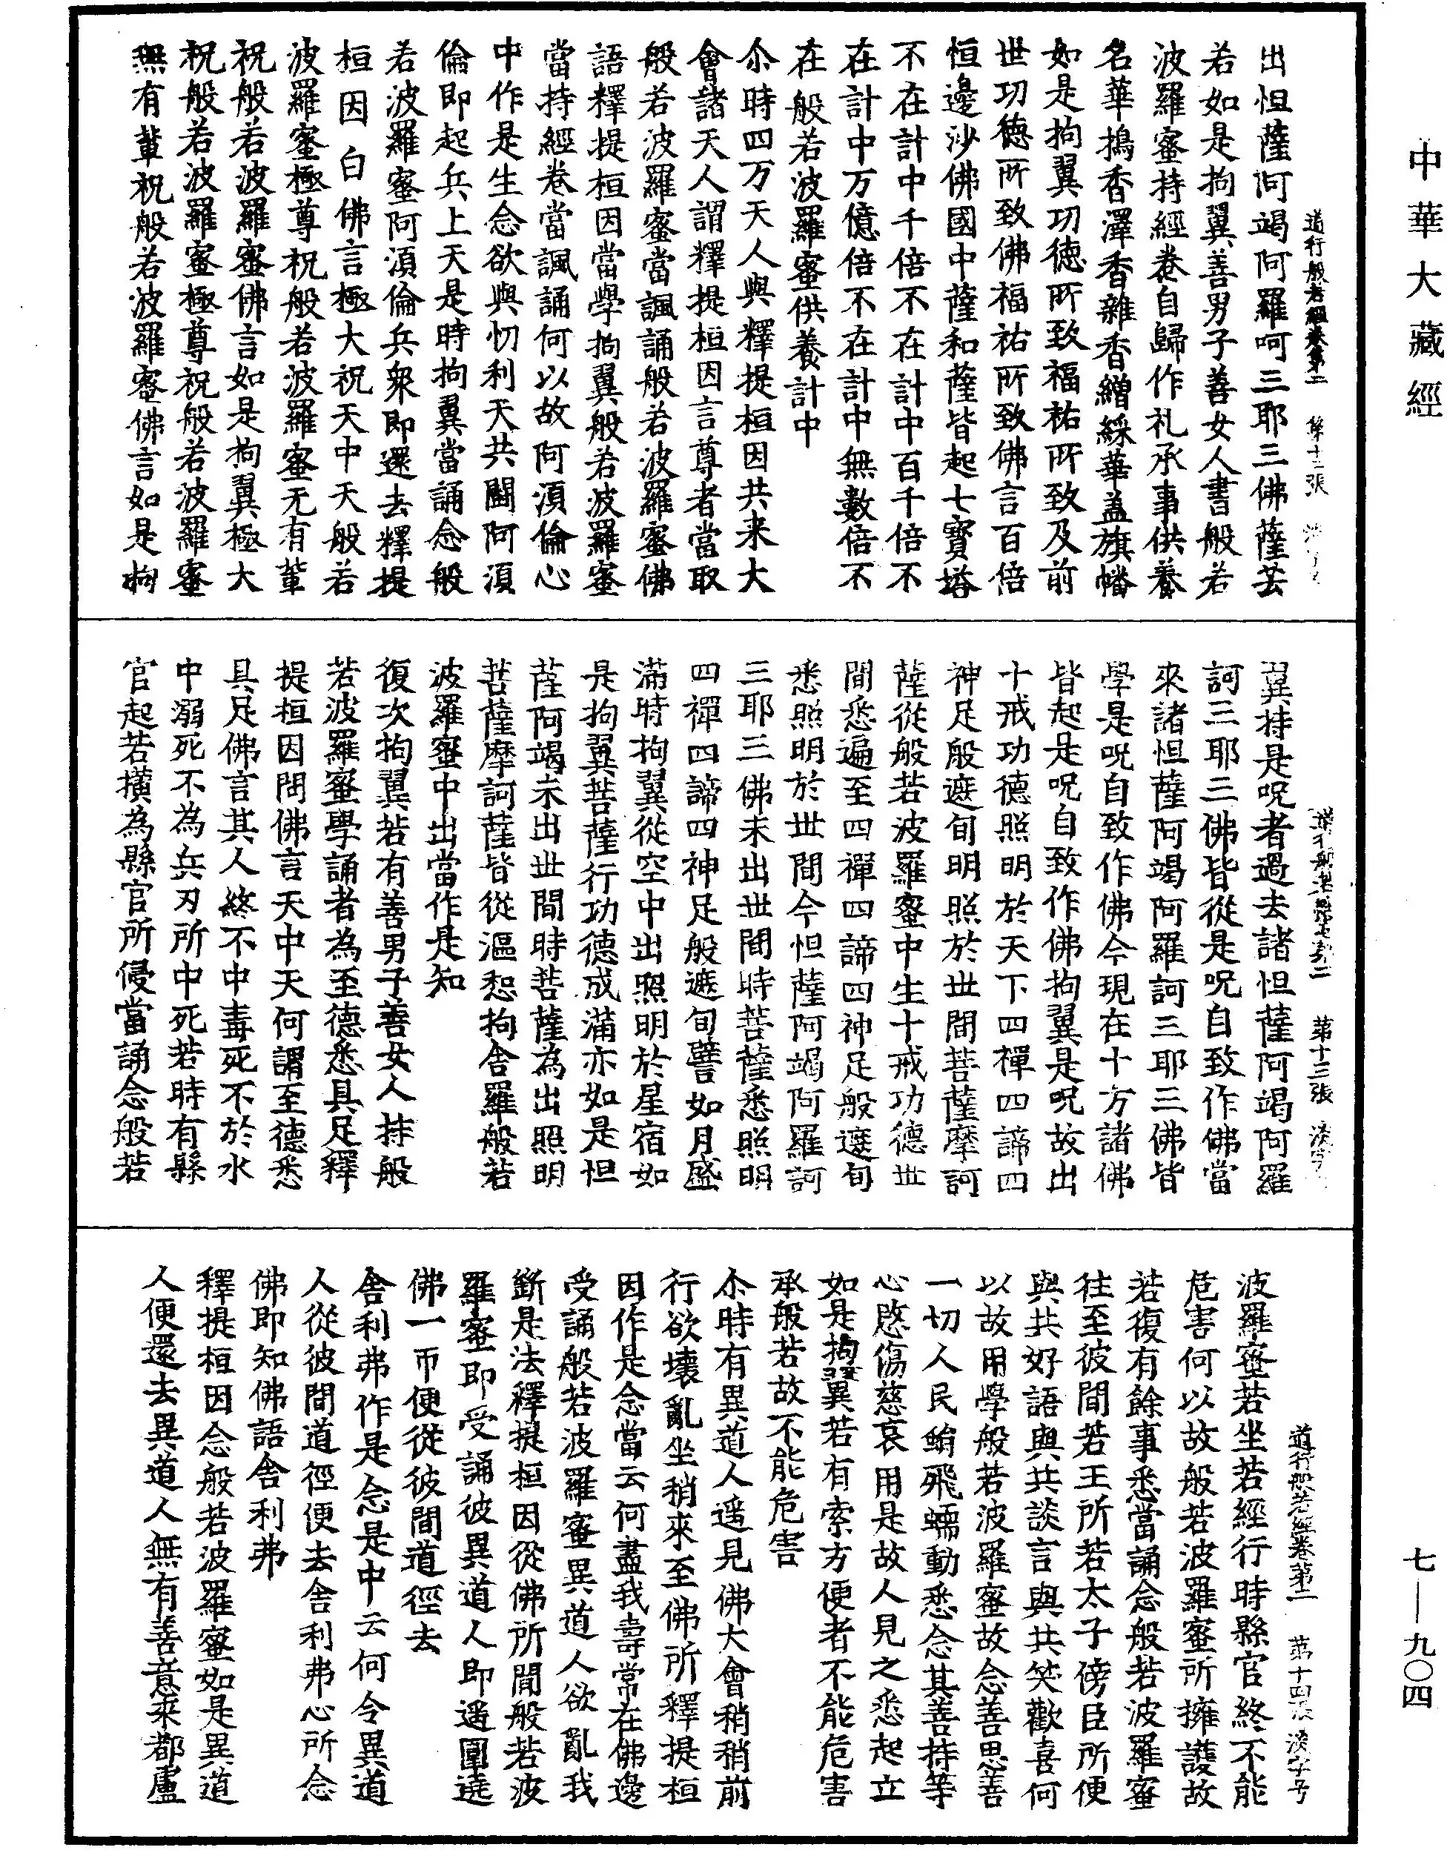 中華大藏經
出怛薩阿竭阿羅呵三耶三佛薩芸
若如是拘翼善男子善女人書般若
波羅蜜持經卷自歸作礼承事供養
名華擣香澤香雜香繒綵華盖旗幡
如是拘翼功徳所致福祐所致及前
世功德所致佛福祐所致佛言百倍
恒邊沙佛國中薩和薩皆起七寶塔
不在計中千倍不在計中百千倍不
在計中万億倍不在計中無數倍不
在般若波羅蜜供養計中
尒時四万天人與釋提桓因共来大
會諸天人謂釋提桓因言尊者當取
般若波羅蜜當諷誦般若波羅蜜佛
語釋提桓因當學拘翼般若波羅蜜
當持經卷當諷誦何以故阿湏倫心
中作是生念欲與忉利天共鬪阿湏
倫即起兵上天是時拘翼當誦念般
若波羅蜜阿湏倫兵衆即還去釋提
桓因白佛言極大祝天中天般若
波羅蜜極尊祝般若波羅蜜无有輩
祝般若波羅蜜佛言如是拘翼極大
祝般若波羅蜜極尊祝般若波羅蜜
無有輩祝般若波羅蜜佛言如是拘
道行般若經卷第二
翼持是呪者過去諸怛薩阿竭阿羅
訶三耶三佛皆從是呪自致作佛當
來諸怛薩阿竭阿羅訶三耶三佛皆
學是呪自致作佛今現在十方諸佛
皆起是呪自致作佛拘翼是呪故出
十戒功德照明於天下四禪四諦四
神足般遮旬明照於世間菩薩摩訶
薩從般若波羅蜜中生十戒功德世
間悉遍至四禪四諦四神足般遮旬
悉照明於世間今怛薩阿竭阿羅訶
三耶三佛未出世間時菩薩悉照明
四禪四諦四神足般遮旬譬如月盛
滿時拘翼從空中出照明於星宿如
是拘翼菩薩行功德成滿亦如是怛
薩阿竭未出世間時菩薩為出照明
菩薩摩訶薩皆從漚惒拘舍羅般若
波羅蜜中出當作是知
復次拘翼若有善男子善女人持般
若波羅蜜學誦者為至德悉具足釋
提桓因問佛言天中天何謂至德悉
具足佛言其人終不中毒死不於水
中溺死不為兵刃所中死若時有縣
官起若撗為縣官所侵當誦念般若
第十三張
波羅蜜若坐若經行時縣官終不能
危害何以故般若波羅蜜所擁護故
若復有餘事悉當誦念般若波羅蜜
往至彼間若王所若太子傍臣所便
與共好語與共談言與共笑歡喜何
以故用學般若波羅蜜故念善思善
一切人民蜎飛蠕動悉念其善持等
心愍傷慈哀用是故人見之悉起立
如是拘翼若有索方便者不能危害
承般若故不能危害
尒時有異道人遥見佛大會稍稍前
行欲壞亂坐稍來至佛所釋提桓
因作是念當云何盡我壽常在佛邊
受誦般若波羅蜜異道人欲亂我
斷是法釋提桓因從佛所聞般若波
羅蜜即受誦彼異道人即遥圍遶
佛一帀便從彼間道徑去
舍利弗作是念是中云何令異道
人從彼間道徑便去舍利弗心所念
佛即知佛語舍利弗
釋提桓因念般若波羅蜜如是異道
人便還去異道人無有善意來都盧
道行般若經卷第二　第十四張
七—九〇四